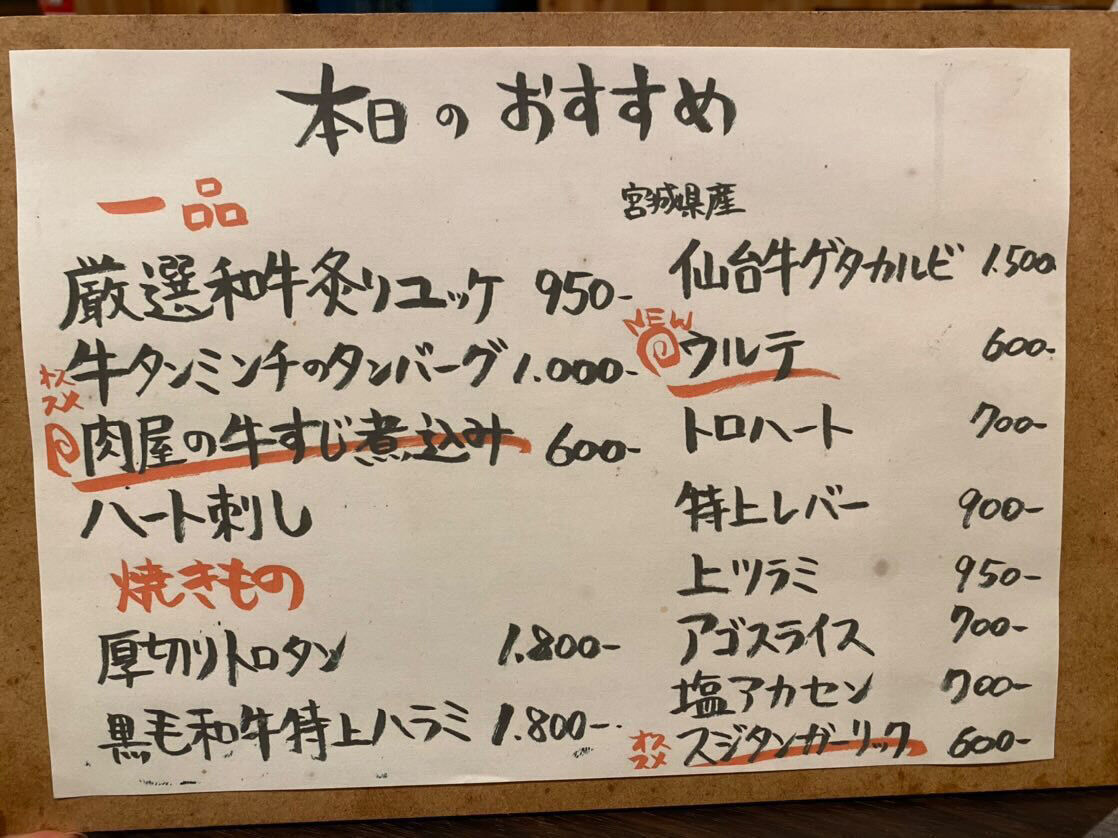 本日のおすすめ
一品
厳選和牛炙りユッケ 950-
オススメ 牛タンミンチのタンバーグ 1.000-
肉屋の牛すじ煮込み 600-
ハート刺し
焼きもの
厚切りトロタン 1.800-
黒毛和牛特上ハラミ 1.800-
宮城県産
仙台牛ゲタカルビ 1.500
NEW
ウルテ 600-
トロハート 700-
特上レバー 900-
上ツラミ 950-
アゴスライス 700-
塩アカセン 700-
オススメ スジタンガーリック 600-